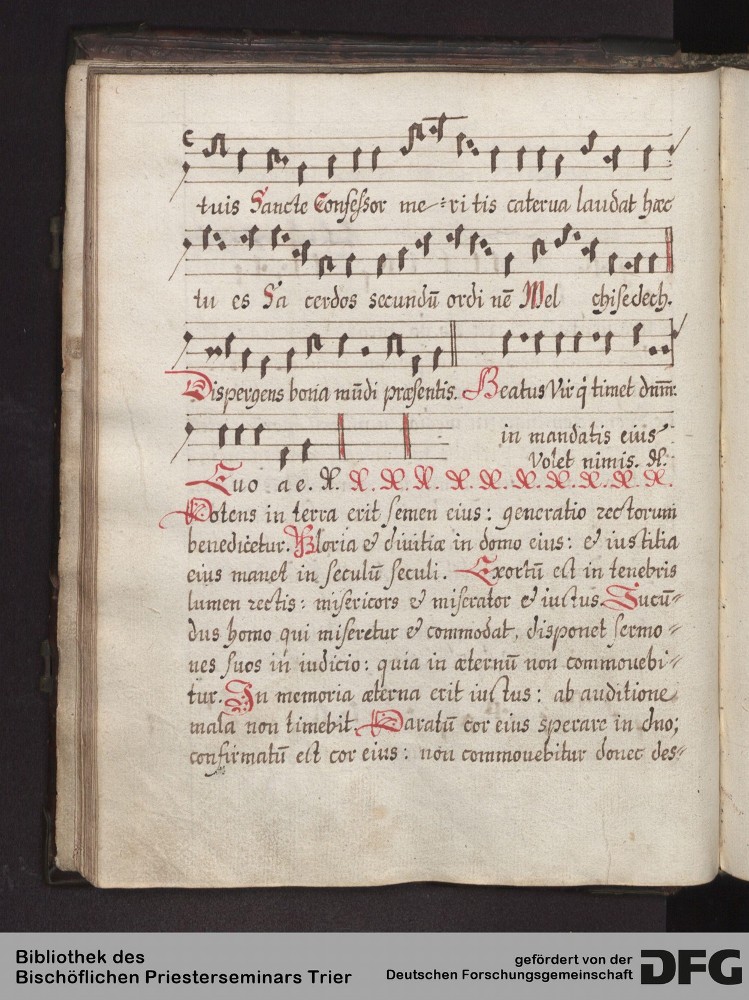 tuis Sancte Confessor me ri tis caterua laudat hæc
tu es Sa cerdos secundū ordi nē Mel chisedech.
Dispergens bona mūdi præsentis. Beatus Vir q̄ timet dn̄m:
in mandatis eius
volet nimis.
Euo a e.
Potens in terra erit semen eius: generatio rectorum
benedicetur. Gloria & diuitiæ in domo eius: & iustitia
eius manet in seculū seculi. Exortū est in tenebris
lumen rectis: misericors & miserator & iustus. Jucū=
dus homo qui miseretur & commodat, disponet sermo=
nes suos in iudicio: quia in æternū non commouebi=
tur. In memoria æterna erit iustus: ab auditione
mala non timebit. Paratū cor eius sperare in dno;
confirmatū est cor eius: non commouebitur donec des=
Bibliothek des
Bischöflichen Priesterseminars Trier
gefördert von der
Deutschen Forschungsgemeinschaft DFG